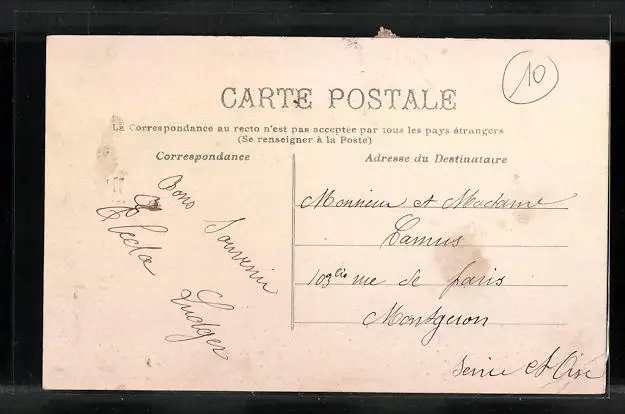 10
CARTE POSTALE
La Correspondance au recto n'est pas acceptée par tous les pays étrangers
(Se renseigner à la Poste)
Correspondance
Adresse du Destinataire
Bons
Souvenir
Ludger
Monsieur et Madame
Camus
103 rue de Paris
Montgeron
Seine et Oise